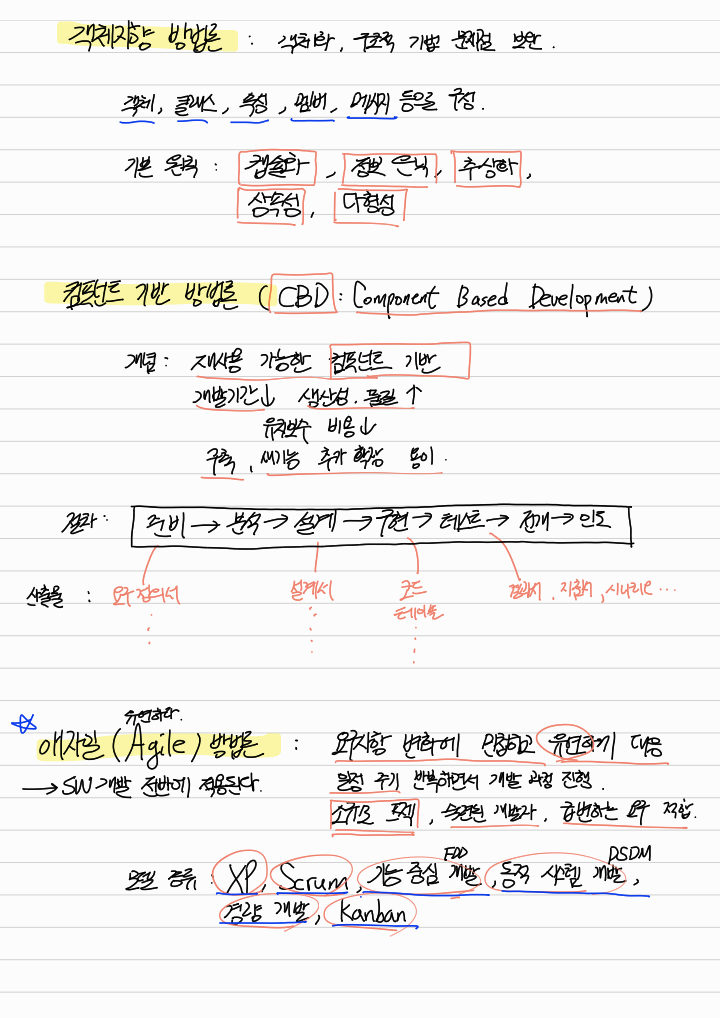 객체지향 방법론 : 객체화, 구조적 기법 문제점 보완.
객체, 클래스, 속성, 멤버, 메시지 등으로 구성.
기본 원칙 : 캡슐화, 정보 은닉, 추상화,
상속성, 다형성
컴포넌트 기반 방법론 (CBD : Component Based Development)
개념 : 재사용 가능한 컴포넌트 기반
개발기간↓ 생산성. 품질↑
유지보수 비용↓
구축, 새기능 추가 확장 용이.
절차 : 준비 → 분석 → 설계 → 구현 → 테스트 → 전개 → 인도
산출물 : 요구정의서 설계서 코드 결과서. 지침서, 시나리오 …
테이블
유연하다.
☆ 애자일 (Agile) 방법론 : 요구사항 변화에 민첩하고 유연하게 대응
→ SW 개발 전반에 적용된다. 일정 주기 반복하면서 개발 과정 진행.
소규모 프젝, 숙련된 개발자, 급변하는 요구 적합.
FDD DSDM
모델 종류 : XP, Scrum, 기능 중심 개발, 동적 시스템 개발,
경량 개발, Kanban